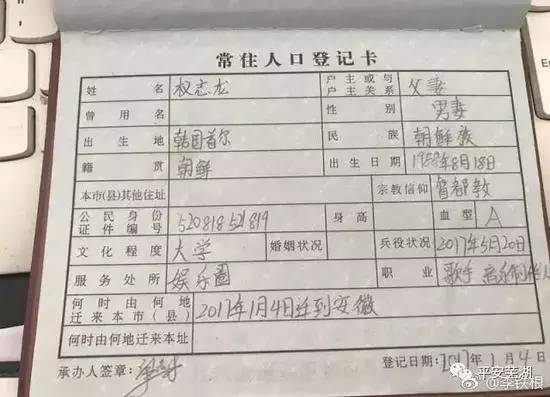 常住人口登记卡
姓名 权志龙 户主或与户主关系 父妻
曾用名 性别 男妻
出生地 韩国首尔 民族 朝鲜族
籍贯 朝鲜 出生日期 1988年8月18日
本市(县)其他住址 宗教信仰
公民身份证件编号 520818521819 身高 血型 A
文化程度 大学 婚姻状况 兵役状况 2017年5月20日
服务处所 娱乐圈 职业 歌手
何时由何地迁来本市(县) 2017年1月4日迁到安徽
何时由何地迁来本址
承办人签章: 登记日期:2017年1月4日
平安芜湖
@李铁根
En